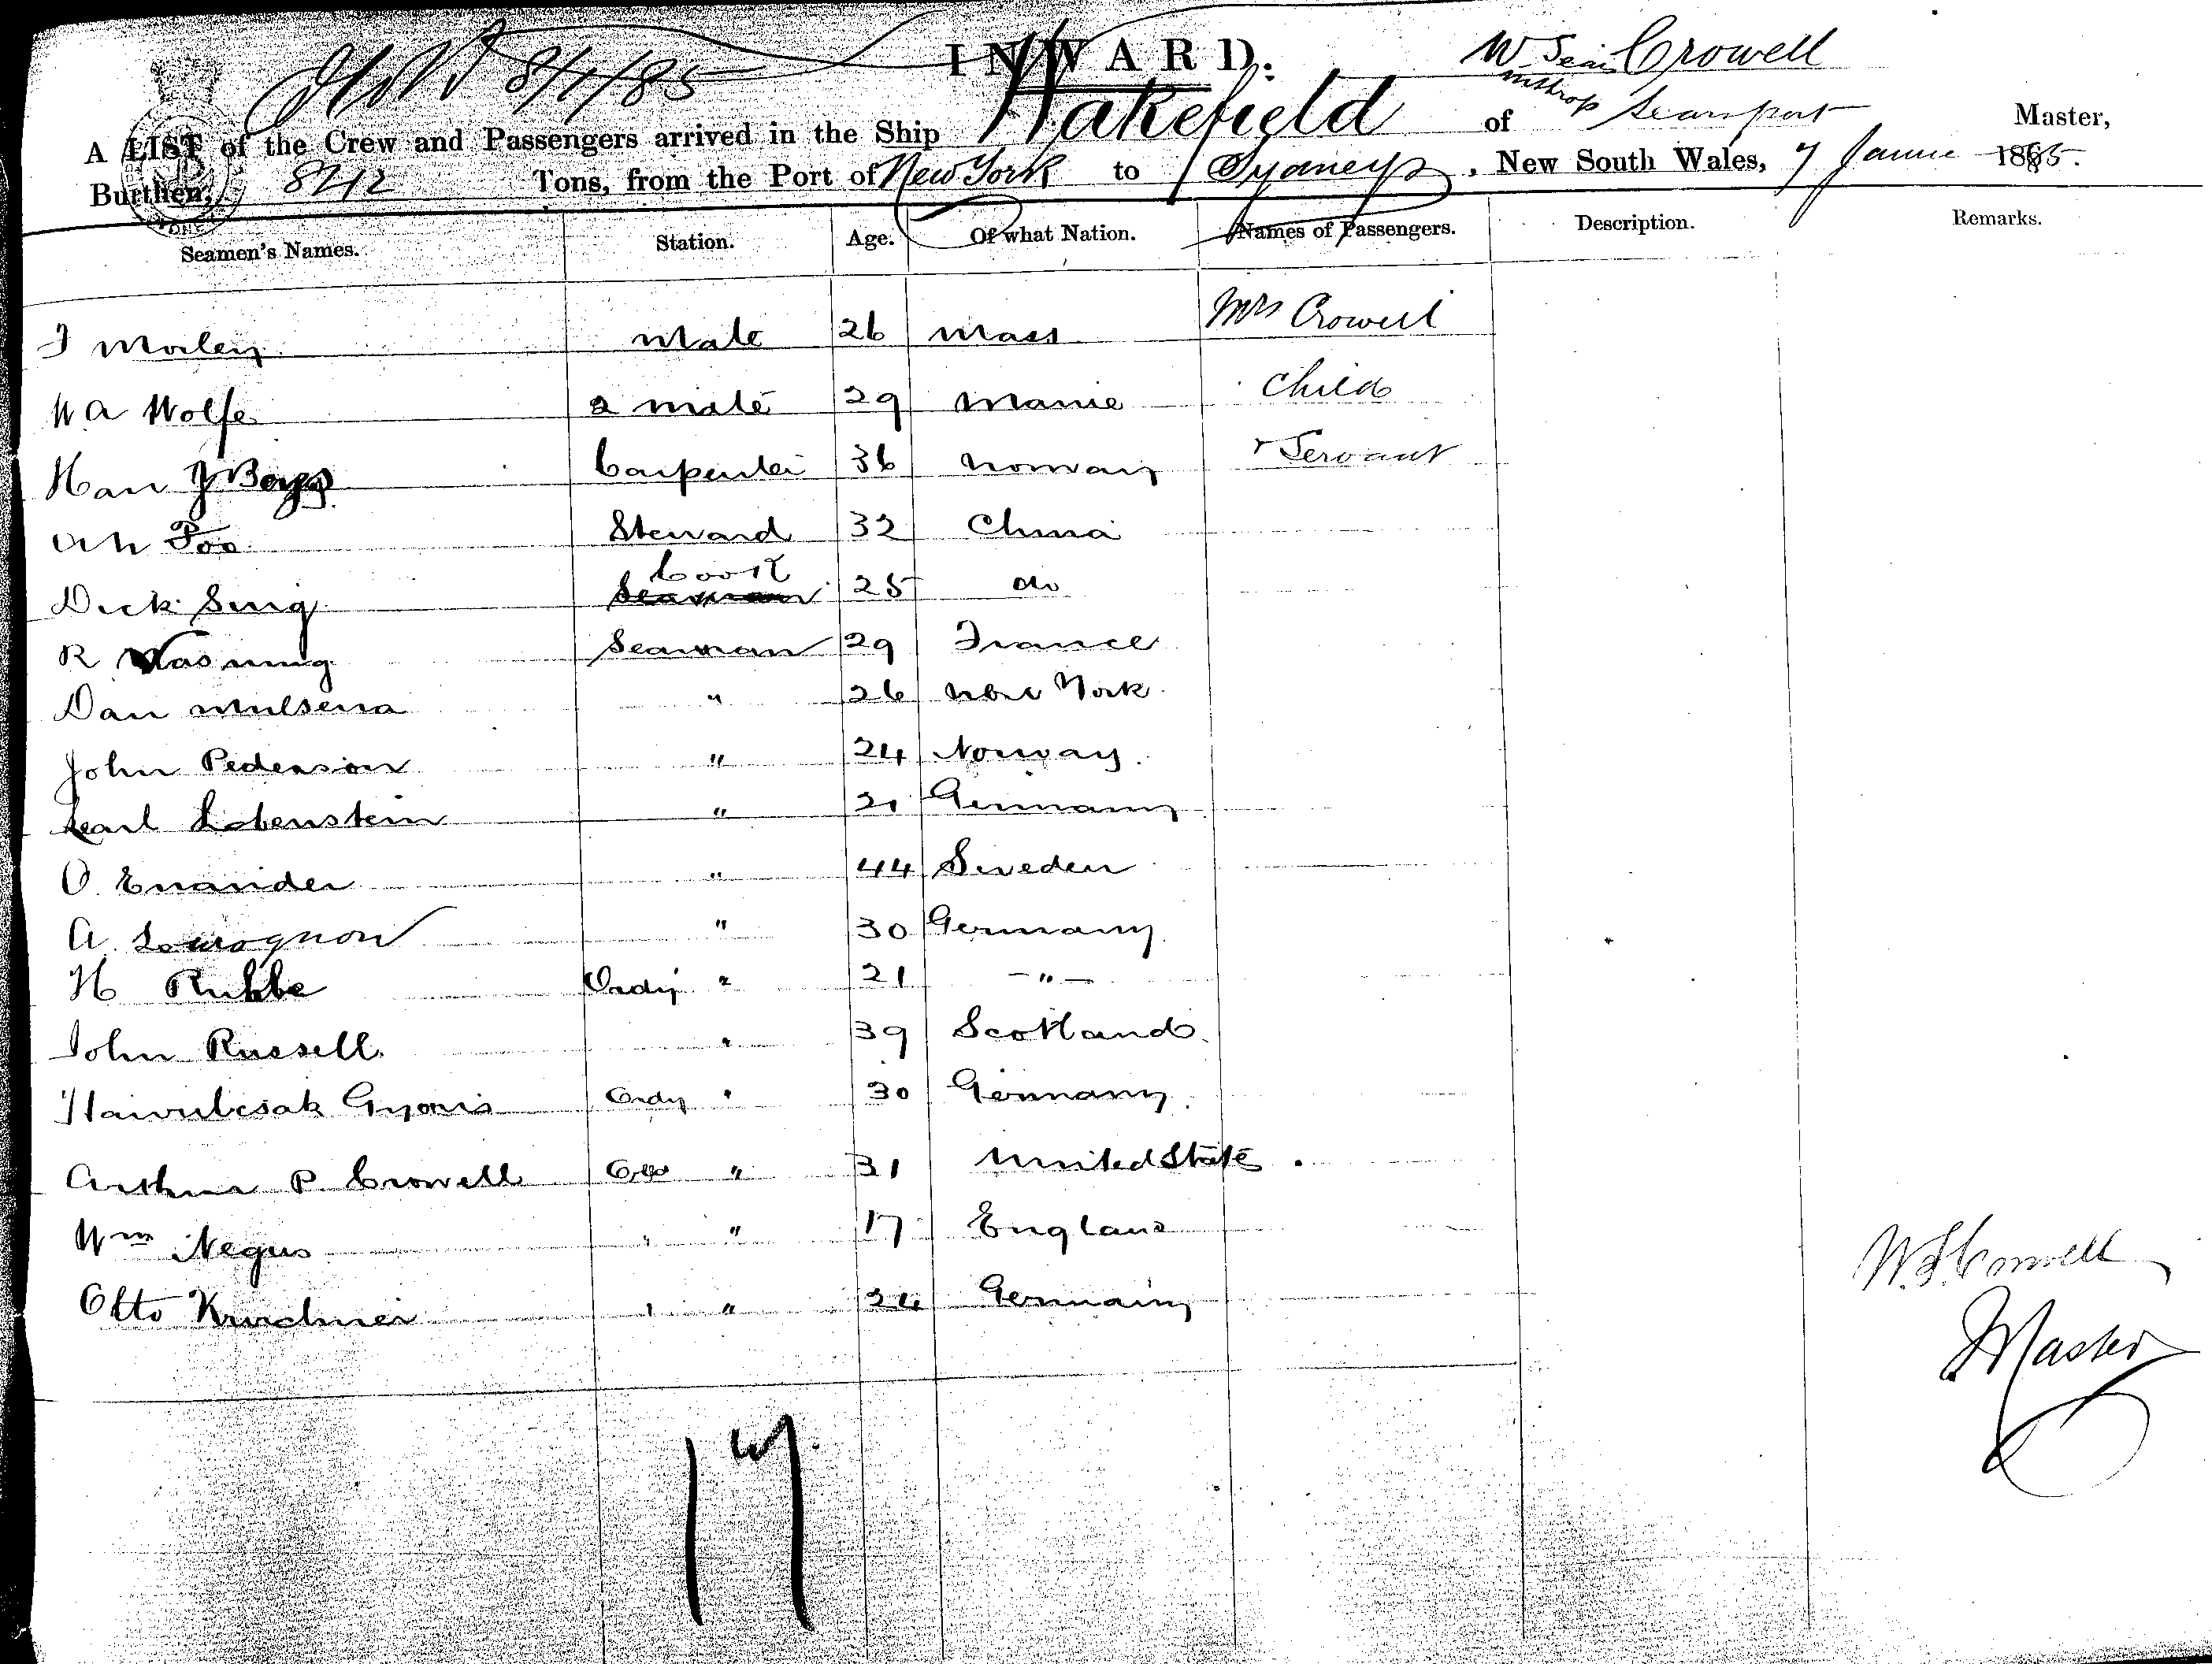 8/1/85
INWARD.
W Sears Crowell
A LIST of the Crew and Passengers arrived in the Ship Wakefield of Searsport Master,
Burthen, Tons, from the Port of New York to Sydney, New South Wales, 7 1885.
Seamen's Names. Station. Age. Of what Nation. Names of Passengers. Description. Remarks.
Mate 26 Mass Mrs Crowell
W A Wolfe 2 mate 29 Maine Child
Carpenter 36 Norway Servant
Ah Foo Steward 32 China
Cook
Dick Sing Seaman 25 do
R Seaman 29 France
Dan " 26 New York
John Pederson " 24 Norway.
Lobenstein " 21 Germany
O. Enander " 44 Sweden
A. " 30 Germany
H Ordy " 21 – " –
John Russell. " 39 Scotland
Ordy " 30 Germany
Arthur P. Crowell " 31 United State
Wm Negus " " 17 England
Otto " " 24 Germany
W.S. Crowell
Master
17